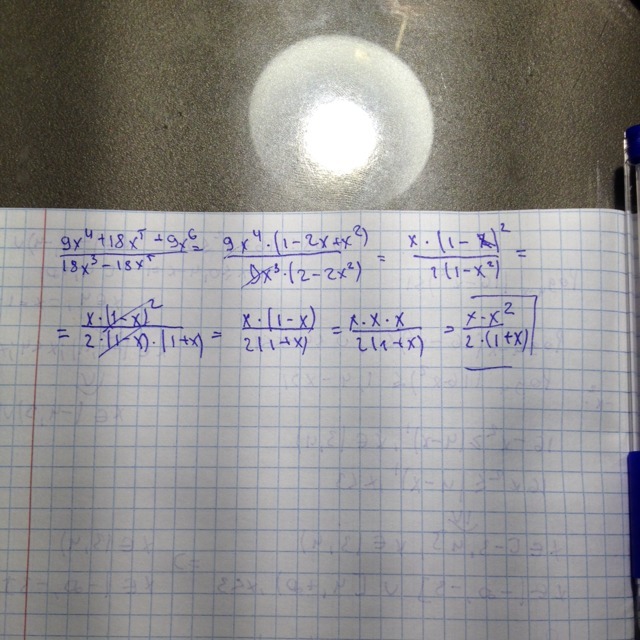 (9x⁴+18x⁵+9x⁶)/(18x³-18x⁵) = (9x⁴·(1-2x+x²))/(9x³·(2-2x²)) = (x·(1-x)²)/(2(1-x²)) =
= (x·(1-x)²)/(2·(1-x)·(1+x)) = (x·(1-x))/(2(1+x)) = (x·x·x)/(2(1+x)) = (x·x²)/(2·(1+x))